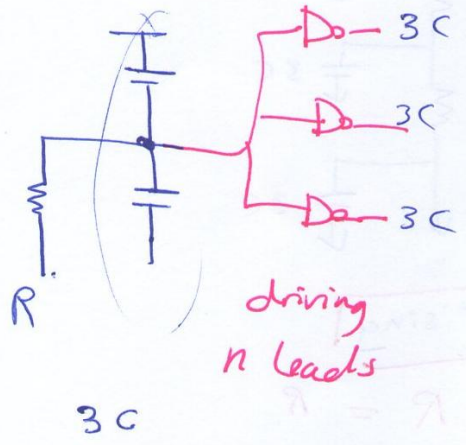 3C
3C
3C
R
driving
n leads
3C